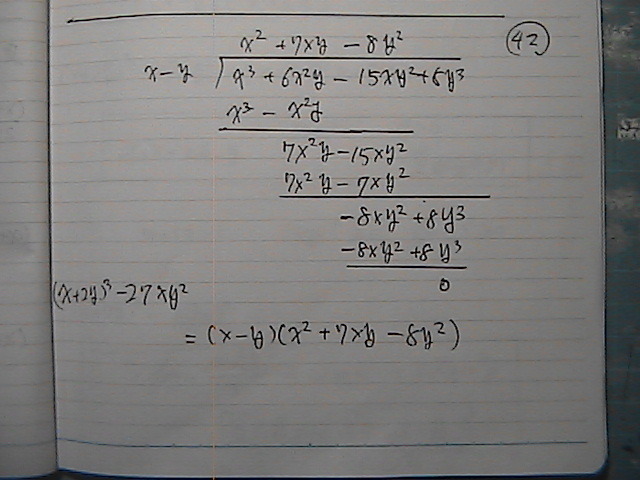 42
x² + 7xy - 8y²
x - y ) x³ + 6x²y - 15xy² + 8y³
x³ - x²y
7x²y - 15xy²
7x²y - 7xy²
-8xy² + 8y³
-8xy² + 8y³
0
(x+2y)³ - 27xy²
= (x-y)(x² + 7xy - 8y²)